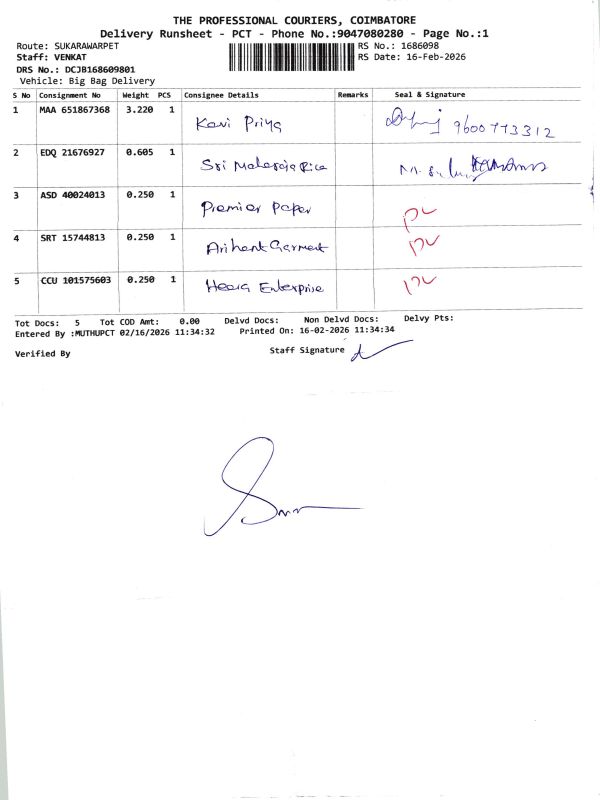 THE PROFESSIONAL COURIERS, COIMBATORE
Delivery Runsheet - PCT - Phone No.:9047080280 - Page No.:1
Route: SUKARAWARPET RS No.: 1686098
Staff: VENKAT RS Date: 16-Feb-2026
DRS No.: DCJB168609801
Vehicle: Big Bag Delivery
S No Consignment No Weight PCS Consignee Details Remarks Seal & Signature
1 MAA 651867368 3.220 1 Kavi Priya 9600773312
2 EDQ 21676927 0.605 1 Sri Maharaja Rice
3 ASD 40024013 0.250 1 Premier Paper
4 SRT 15744813 0.250 1 Arihant Garment
5 CCU 101575603 0.250 1 Heera Enterprise
Tot Docs: 5 Tot COD Amt: 0.00 Delvd Docs: Non Delvd Docs: Delvy Pts:
Entered By :MUTHUPCT 02/16/2026 11:34:32 Printed On: 16-02-2026 11:34:34
Verified By Staff Signature